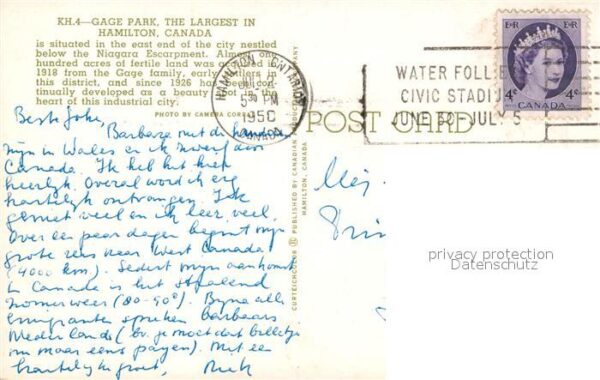 KH.4—GAGE PARK, THE LARGEST IN
HAMILTON, CANADA
is situated in the east end of the city nestled
below the Niagara Escarpment. Almost one
hundred acres of fertile land was acquired in
1918 from the Gage family, early settlers in
this district, and since 1926 has been con-
tinually developed as a beauty spot in the
heart of this industrial city.
PHOTO BY CAMERA CORR
HAMILTON ONTARIO
5 30 PM
195
CANADA
WATER FOLLIES
CIVIC STADIUM
JUNE 30 - JULY 5
E II R
E II R
4¢ CANADA 4¢
POST CARD
CURTEICHCOLOR
PUBLISHED BY CANADIAN
HAMILTON, CANADA
Beste Joke,
Barbara met de
mijn in Wales en ik zwerf door
Canada. Ik heb het hier
heerlijk. Overal word ik erg
hartelijk ontvangen. Ik
geniet veel en ik leer veel.
Over een paar dagen begint mijn
grote reis naar West Canada
(4000 km). Sedert mijn aankomst
in Canada is het stralend
zomerweer (80-90°). Bijna alle
emigranten spreken barbaars
Nederlands (bv. je moet dat billetje
nu maar eens payen). Met een
hartelijke groet,
Mej.
Prin
privacy protection
Datenschutz